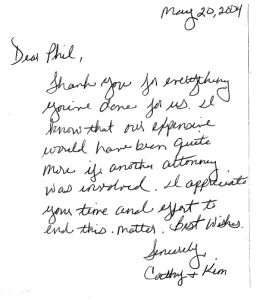 May 20, 2004
Dear Phil,
Thank you for everything
you've done for us. I
know that our expensive
would have been quite
more if another attorney
was involved. I appreciate
your time and effort to
end this matter. Best Wishes.
Sincerely,
Cathy + Kim